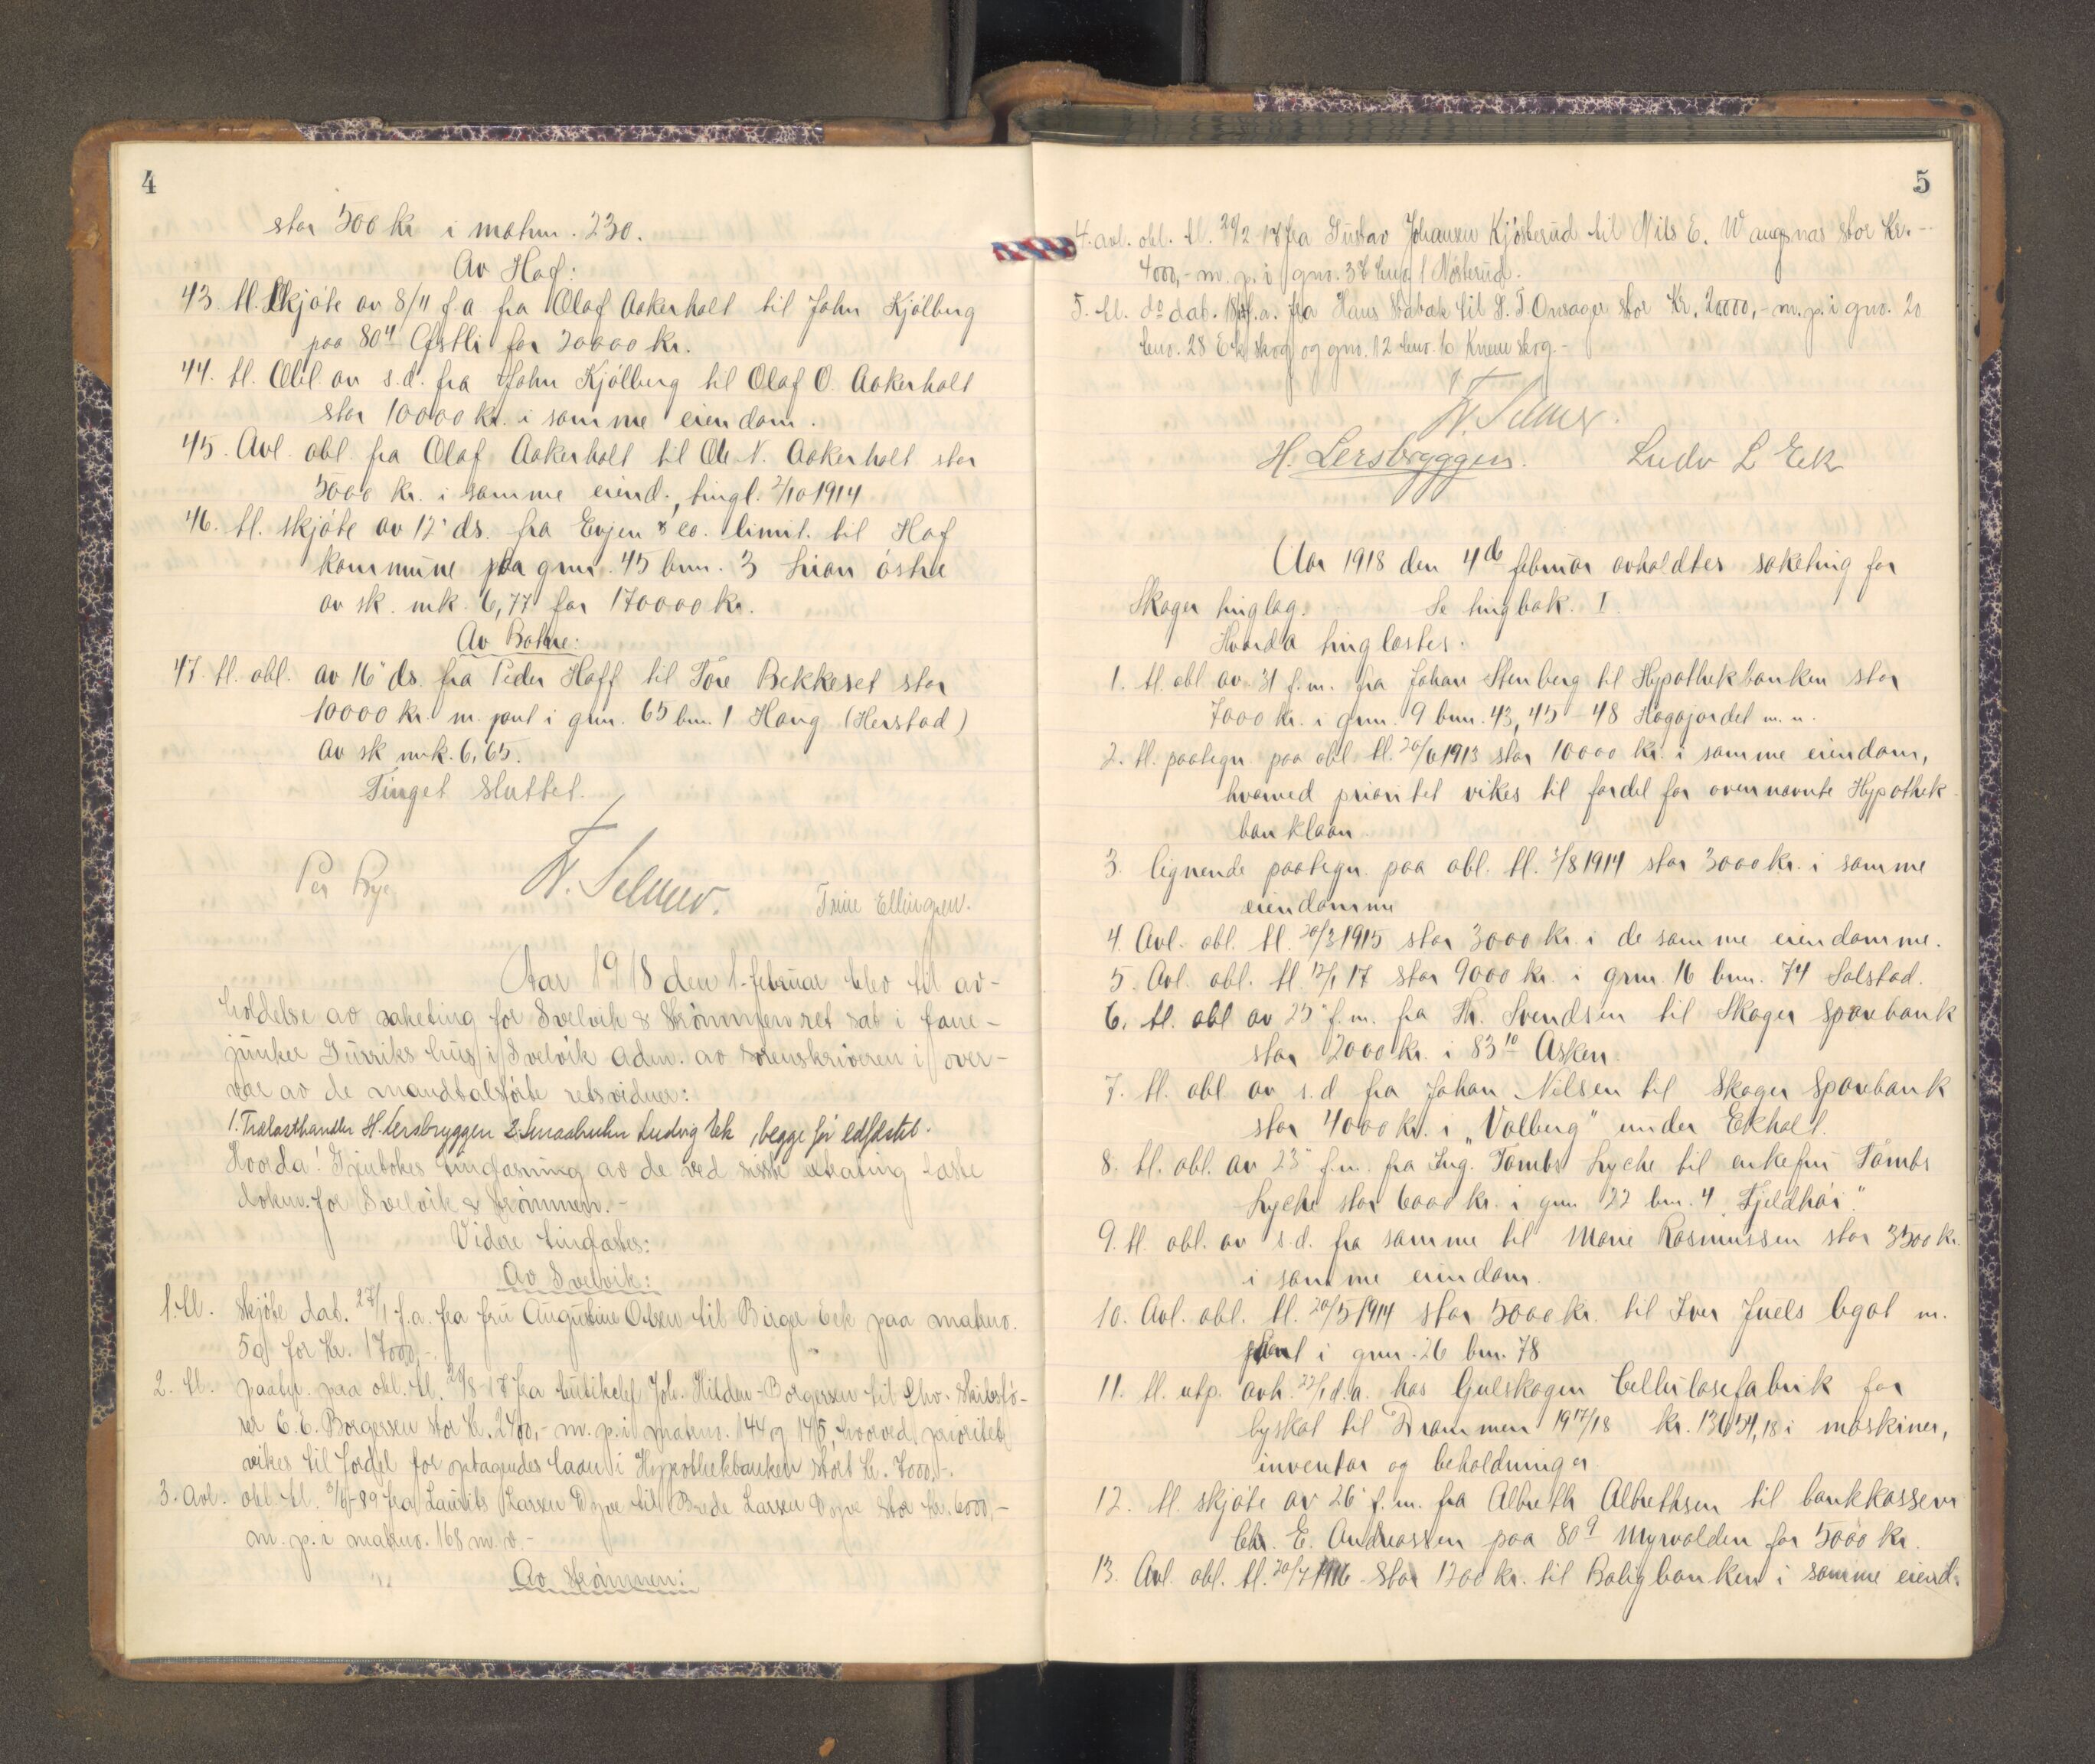 4
stor 500 kr i matrn. 230.
Av Hof:
43. tl. Skjöte av 8/11 f.a. fra Olaf Aakerholt til John Kjölberg
paa 80 4 for 20000 kr.
44. tl. Obl. av s.d. fra John Kjölberg til Olaf O. Aakerholt
stor 10000 kr. i samme eiendom.
45. Avl. obl. fra Olaf Aakerholt til Ole N. Aakerholt stor
5000 kr. i samme eiend., tingl. 2/10 1914
46. tl. skjöte av 12' ds. fra Evjen & co. limit. til Hof
kommune paa grnr. 45 bnr. 3 Lian östre
av sk. mk. 6,77 for 170000 kr.
Av Botne:
47. tl. obl. av 16' ds. fra Peder Hoff til Tore Bekkeset stor
10000 kr. m. pant i gnr. 65 bnr. 1 Haug (Herstad)
av sk mrk. 6,65.
Tinget sluttet.
Per Rye Fr. Selmer. Trine Ellingsen.
Aar 1918 den 1. februar blev til av-
holdelse av saketing for Svelvik & Strömmen ret sat i fane-
junker Gurriks hus i Svelvik adm. av sorenskriveren i over-
vær av de mandtalsförte retsvidner:
1. Trælasthandler H. Lersbryggen 2. Smaabruker Ludvig Eek, begge för edfæstet.
Hvorda! Gjentokes tinglæsning av de ved sidste ekstrating læste
dokum. for Svelvik & Strömmen.-
Videre tinglæstes:
Av Svelvik:
1. tl. skjöte dat. 27/1 f.a. fra fru Augustine Olsen til Birger Eek paa matrnr.
59 for kr. 17000,-.
2. tl. paategn. paa obl. tl. 29/8 17 fra butikchef Joh. Hilden-Borgersen til Skibsfö-
rer E. E. Borgersen stor kr. 2400,- m. p. i matrnr. 144 og 145, hvorved prioritet
vikes til fordel for optagendes laan i Hypothekbanken stort kr. 7000,-.
3. Avl. obl. tl. 3/6-89 fra Laurits Larsen Dype til Brede Larsen Dype stor kr. 6000,-
m. p. i matrnr. 168 m. v.-
Av Strömmen:
5
4. avl. obl. tl. 20/2-17 fra Gustav Johansen Kjösterud til Nils E. Wangsnæs stor kr.--
4000,- m. p. i gno. 37 bno 1 Nösterud.
5. tl. do dat. f.a. fra Hans Stabæk til S. T. Onsager stor kr. 20000,- m. p. i gno. 20
bno. 28 Ek skog og gno. 12 bno. 6 Knem skog.-
Fr. Selmer.
H. Lersbryggen. Ludv L Eek
Aar 1918 den 4de februar avholdtes saketing for
Skoger tinglag. Se tingbok. I.
Hvorda tinglæstes.
1. tl. obl av 31 f.m. fra Johan Stenberg til Hypothekbanken stor
7000 kr. i gnr. 9 bnr. 43, 45-48 Hagajordet m. m.
2. tl. paategn. paa obl. tl. 20/6 1913 stor 10000 kr. i samme eiendom,
hvormed prioritet vikes til fordel for ovennævnte Hypothek-
banklaan.
3. lignende paategn. paa obl. tl. 3/8 1914 stor 3000 kr. i samme
eiendomme
4. Avl. obl. tl. 20/3 1915 stor 3000 kr. i de samme eiendomme.
5. Avl. obl. tl 12/1 17 stor 9000 kr. i grnr. 16 bnr. 74 Solstad.
6. tl. obl av 25' f.m. fra Th. Svendsen til Skoger Sparebank
stor 2000 kr. i 83 10 Asken.
7. tl. obl av s.d fra Johan Nilsen til Skoger Sparebank
stor 4000 kr. i „Valberg" under Ekholt.
8. tl. obl. av 23' f.m. fra Ing. Tambs Lyche til enkefru Tambs
Lyche stor 6000 kr. i gnr. 22 bnr. 4 „Fjeldhöi."
9. tl. obl. av s.d. fra samme til Marie Rasmussen stor 3500 kr.
i samme eiendom.
10. Avl. obl. tl. 20/5 1914 stor 5000 kr. til Iver Juels legat m.
pant i gnr. 26 bnr. 78
11. tl. utp. avh. 22/1 d.a. hos Gulskogen Cellulosefabrik for
byskat til Drammen 1917/18 kr. 13654,18 i maskiner,
inventar og beholdninger.
12. tl. skjöte av 26' f.m. fra Albreth Albrethsen til bankkasserer
Chr. E. Andreassen paa 80 9 Myrvolden for 5000 kr.
13. Avl. obl. tl. 20/7 1916 stor 1200 kr. til Boligbanken i samme eiend.